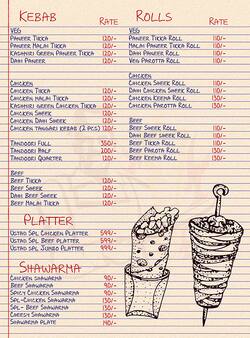 KEBAB RATE
VEG
PANEER TIKKA 120/-
PANEER MALAI TIKKA 120/-
KASHMIRI GREEN PANEER TIKKA 120/-
DAHI PANEER 120/-
CHICKEN
CHICKEN TIKKA 120/-
CHICKEN MALAI TIKKA 120/-
KASHMIRI GREEN CHICKEN TIKKA 120/-
CHICKEN DAHI 120/-
CHICKEN SHEEK 120/-
CHICKEN DAHI SHEEK 120/-
CHICKEN TANGARI KEBAB (2 PCS) 120/-
TANDOORI FULL 350/-
TANDOORI HALF 200/-
TANDOORI QUARTER 120/-
BEEF
BEEF TIKKA 120/-
BEEF SHEEK 120/-
DAHI BEEF SHEEK 120/-
BEEF MALAI TIKKA 120/-
PLATTER
USTAD SPL CHICKEN PLATTER 599/-
USTAD SPL BEEF PLATTER 599/-
USTAD SPL JUMBO PLATTER 999/-
SHAWARMA
CHICKEN SHAWARMA 90/-
BEEF SHAWARMA 90/-
SPICY CHICKEN SHAWARMA 90/-
SPL-CHICKEN SHAWARMA 130/-
SPL- BEEF SHAWARMA 130/-
CHEESY SHAWARMA 130/-
SHAWARMA PLATE 140/-
ROLLS RATE
VEG
PANEER TIKKA ROLL 110/-
MALAI PANEER TIKKA ROLL 110/-
DAHI PANEER ROLL 110/-
VEG PAROTTA ROLL 110/-
CHICKEN
CHICKEN SHEEK ROLL 110/-
CHICKEN DAHI SHEEK ROLL 110/-
CHICKEN KEEMA ROLL 130/-
CHICKEN PAROTTA ROLL 130/-
BEEF
BEEF SHEEK ROLL 110/-
DAHI BEEF SHEEK ROLL 110/-
BEEF PAROTTA ROLL 110/-
BEEF KEEMA ROLL 130/-